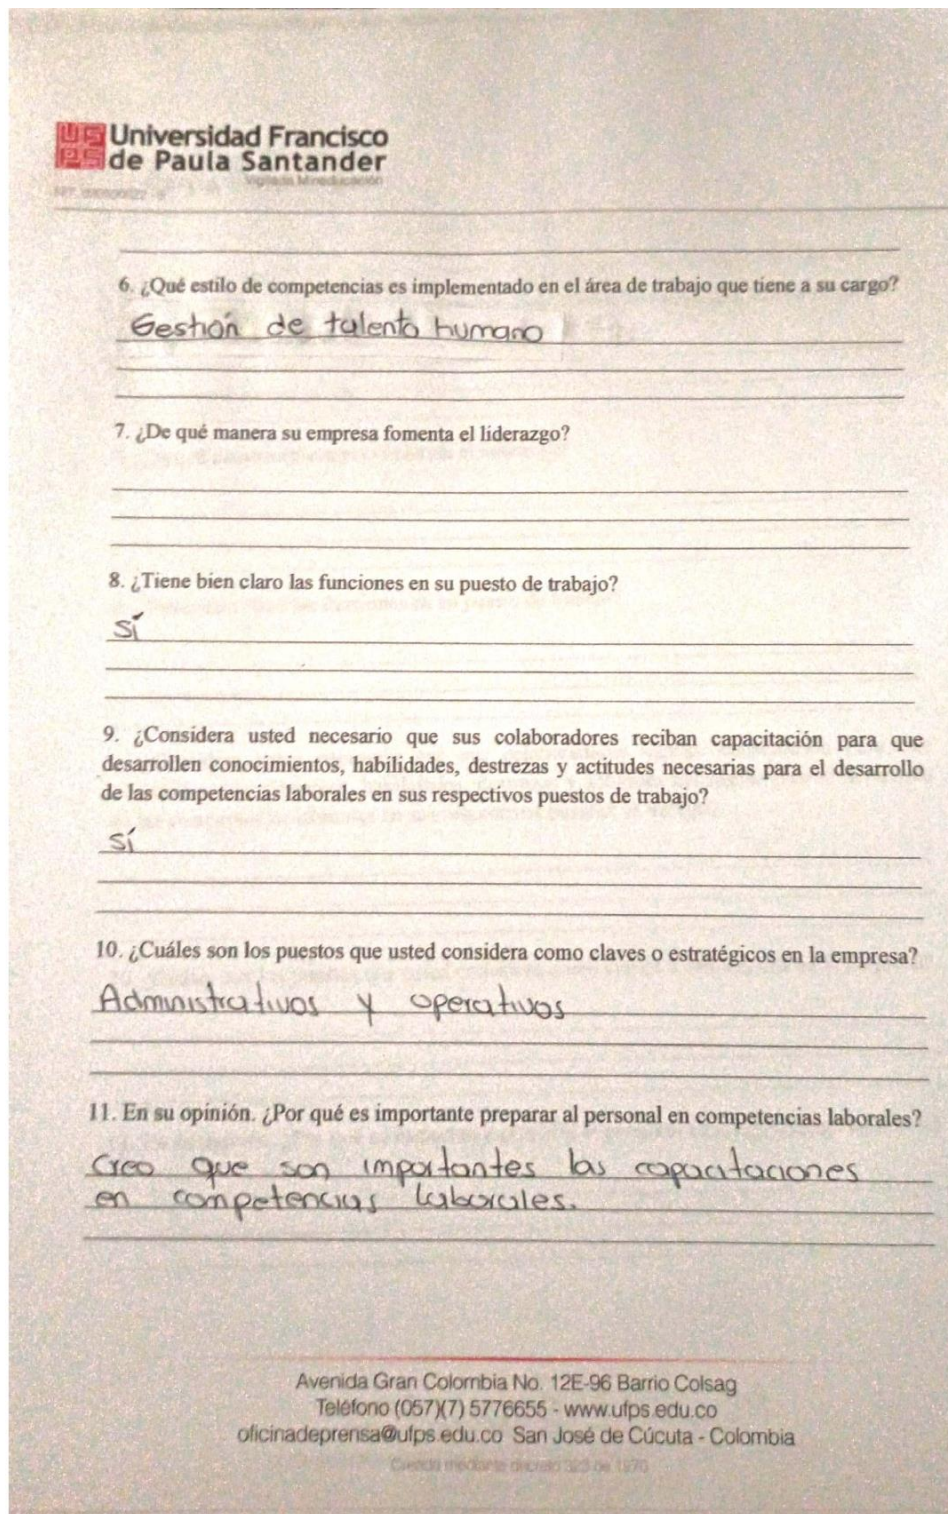 UFPS
Universidad Francisco
de Paula Santander
Vigilada Mineducación
6. ¿Qué estilo de competencias es implementado en el área de trabajo que tiene a su cargo?
Gestión de talento humano
7. ¿De qué manera su empresa fomenta el liderazgo?
8. ¿Tiene bien claro las funciones en su puesto de trabajo?
Sí
9. ¿Considera usted necesario que sus colaboradores reciban capacitación para que
desarrollen conocimientos, habilidades, destrezas y actitudes necesarias para el desarrollo
de las competencias laborales en sus respectivos puestos de trabajo?
Sí
10. ¿Cuáles son los puestos que usted considera como claves o estratégicos en la empresa?
Administrativos y operativos
11. En su opinión. ¿Por qué es importante preparar al personal en competencias laborales?
Creo que son importantes las capacitaciones
en competencias laborales.
Avenida Gran Colombia No. 12E-96 Barrio Colsag
Teléfono (057)(7) 5776655 - www.ufps.edu.co
oficinadeprensa@ufps.edu.co San José de Cúcuta - Colombia
Creada mediante decreto 323 de 1970